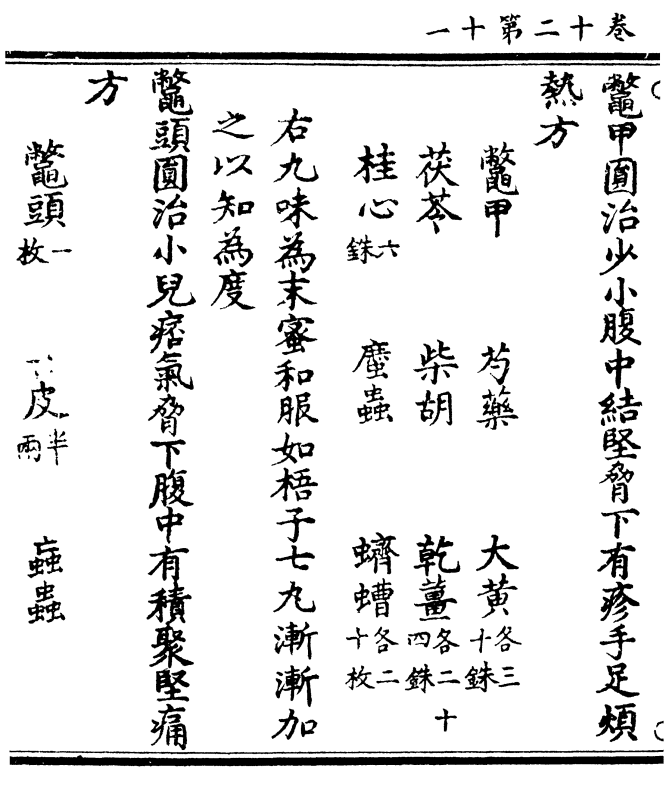 卷十二第十一
鼈甲圓治少小腹中結堅脅下有疹手足煩
熱方
鼈甲 芍藥 大黄各三十銖
茯苓 柴胡 乾薑各二十四銖
桂心六銖 䗪蟲 蠐螬各二十枚
右九味為末蜜和服如梧子七丸漸漸加
之以知為度
鼈頭圓治小兒痞氣脅下腹中有積聚堅痛
方
鼈頭一枚 皮半兩 䖟蟲